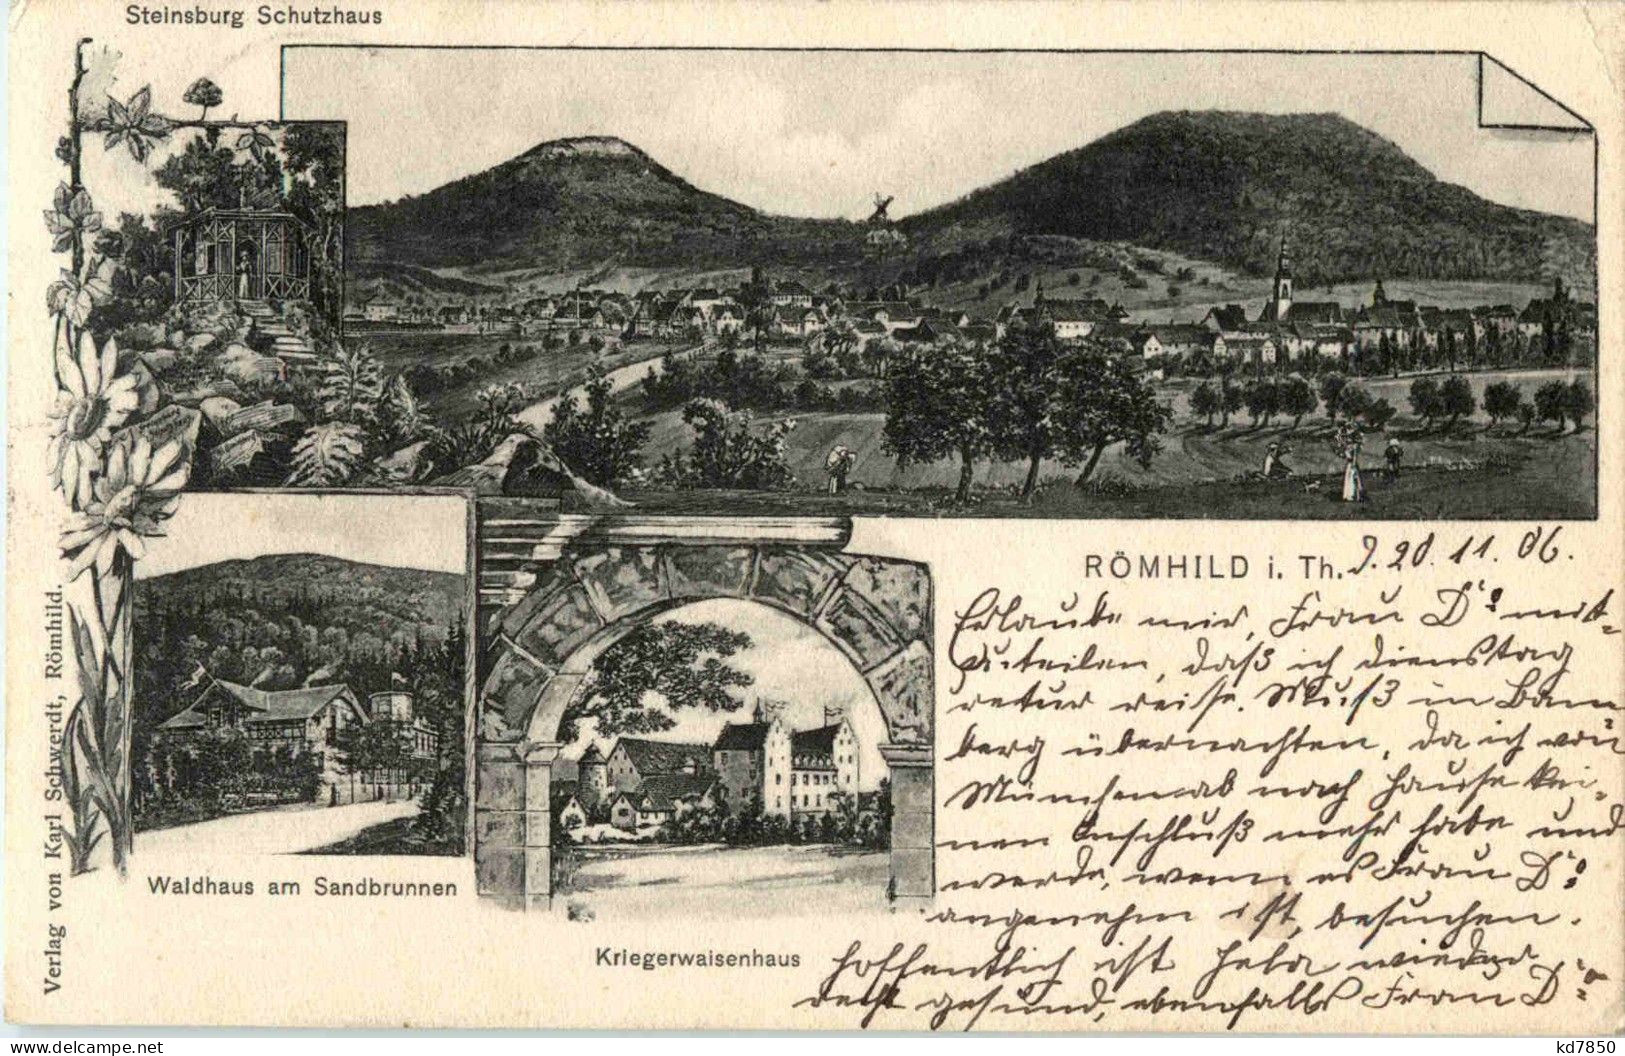 Steinsburg Schutzhaus
Verlag von Karl Schwerdt, Römhild.
Waldhaus am Sandbrunnen
Kriegerwaisenhaus
RÖMHILD i. Th. 20. 11. 06.
Erlaube mir, Frau Dr. mit-
zuteilen, daß ich Dienstag
retur reise. Muß in Bam-
berg übernachten, da ich von
München ab nach Hause kei-
nen Anschluß mehr habe und
werde, wenn es Frau Dr.
angenehm ist, besuchen.
Hoffentlich ist Hela wieder
recht gesund, ebenfalls Frau Dr.
kd7850